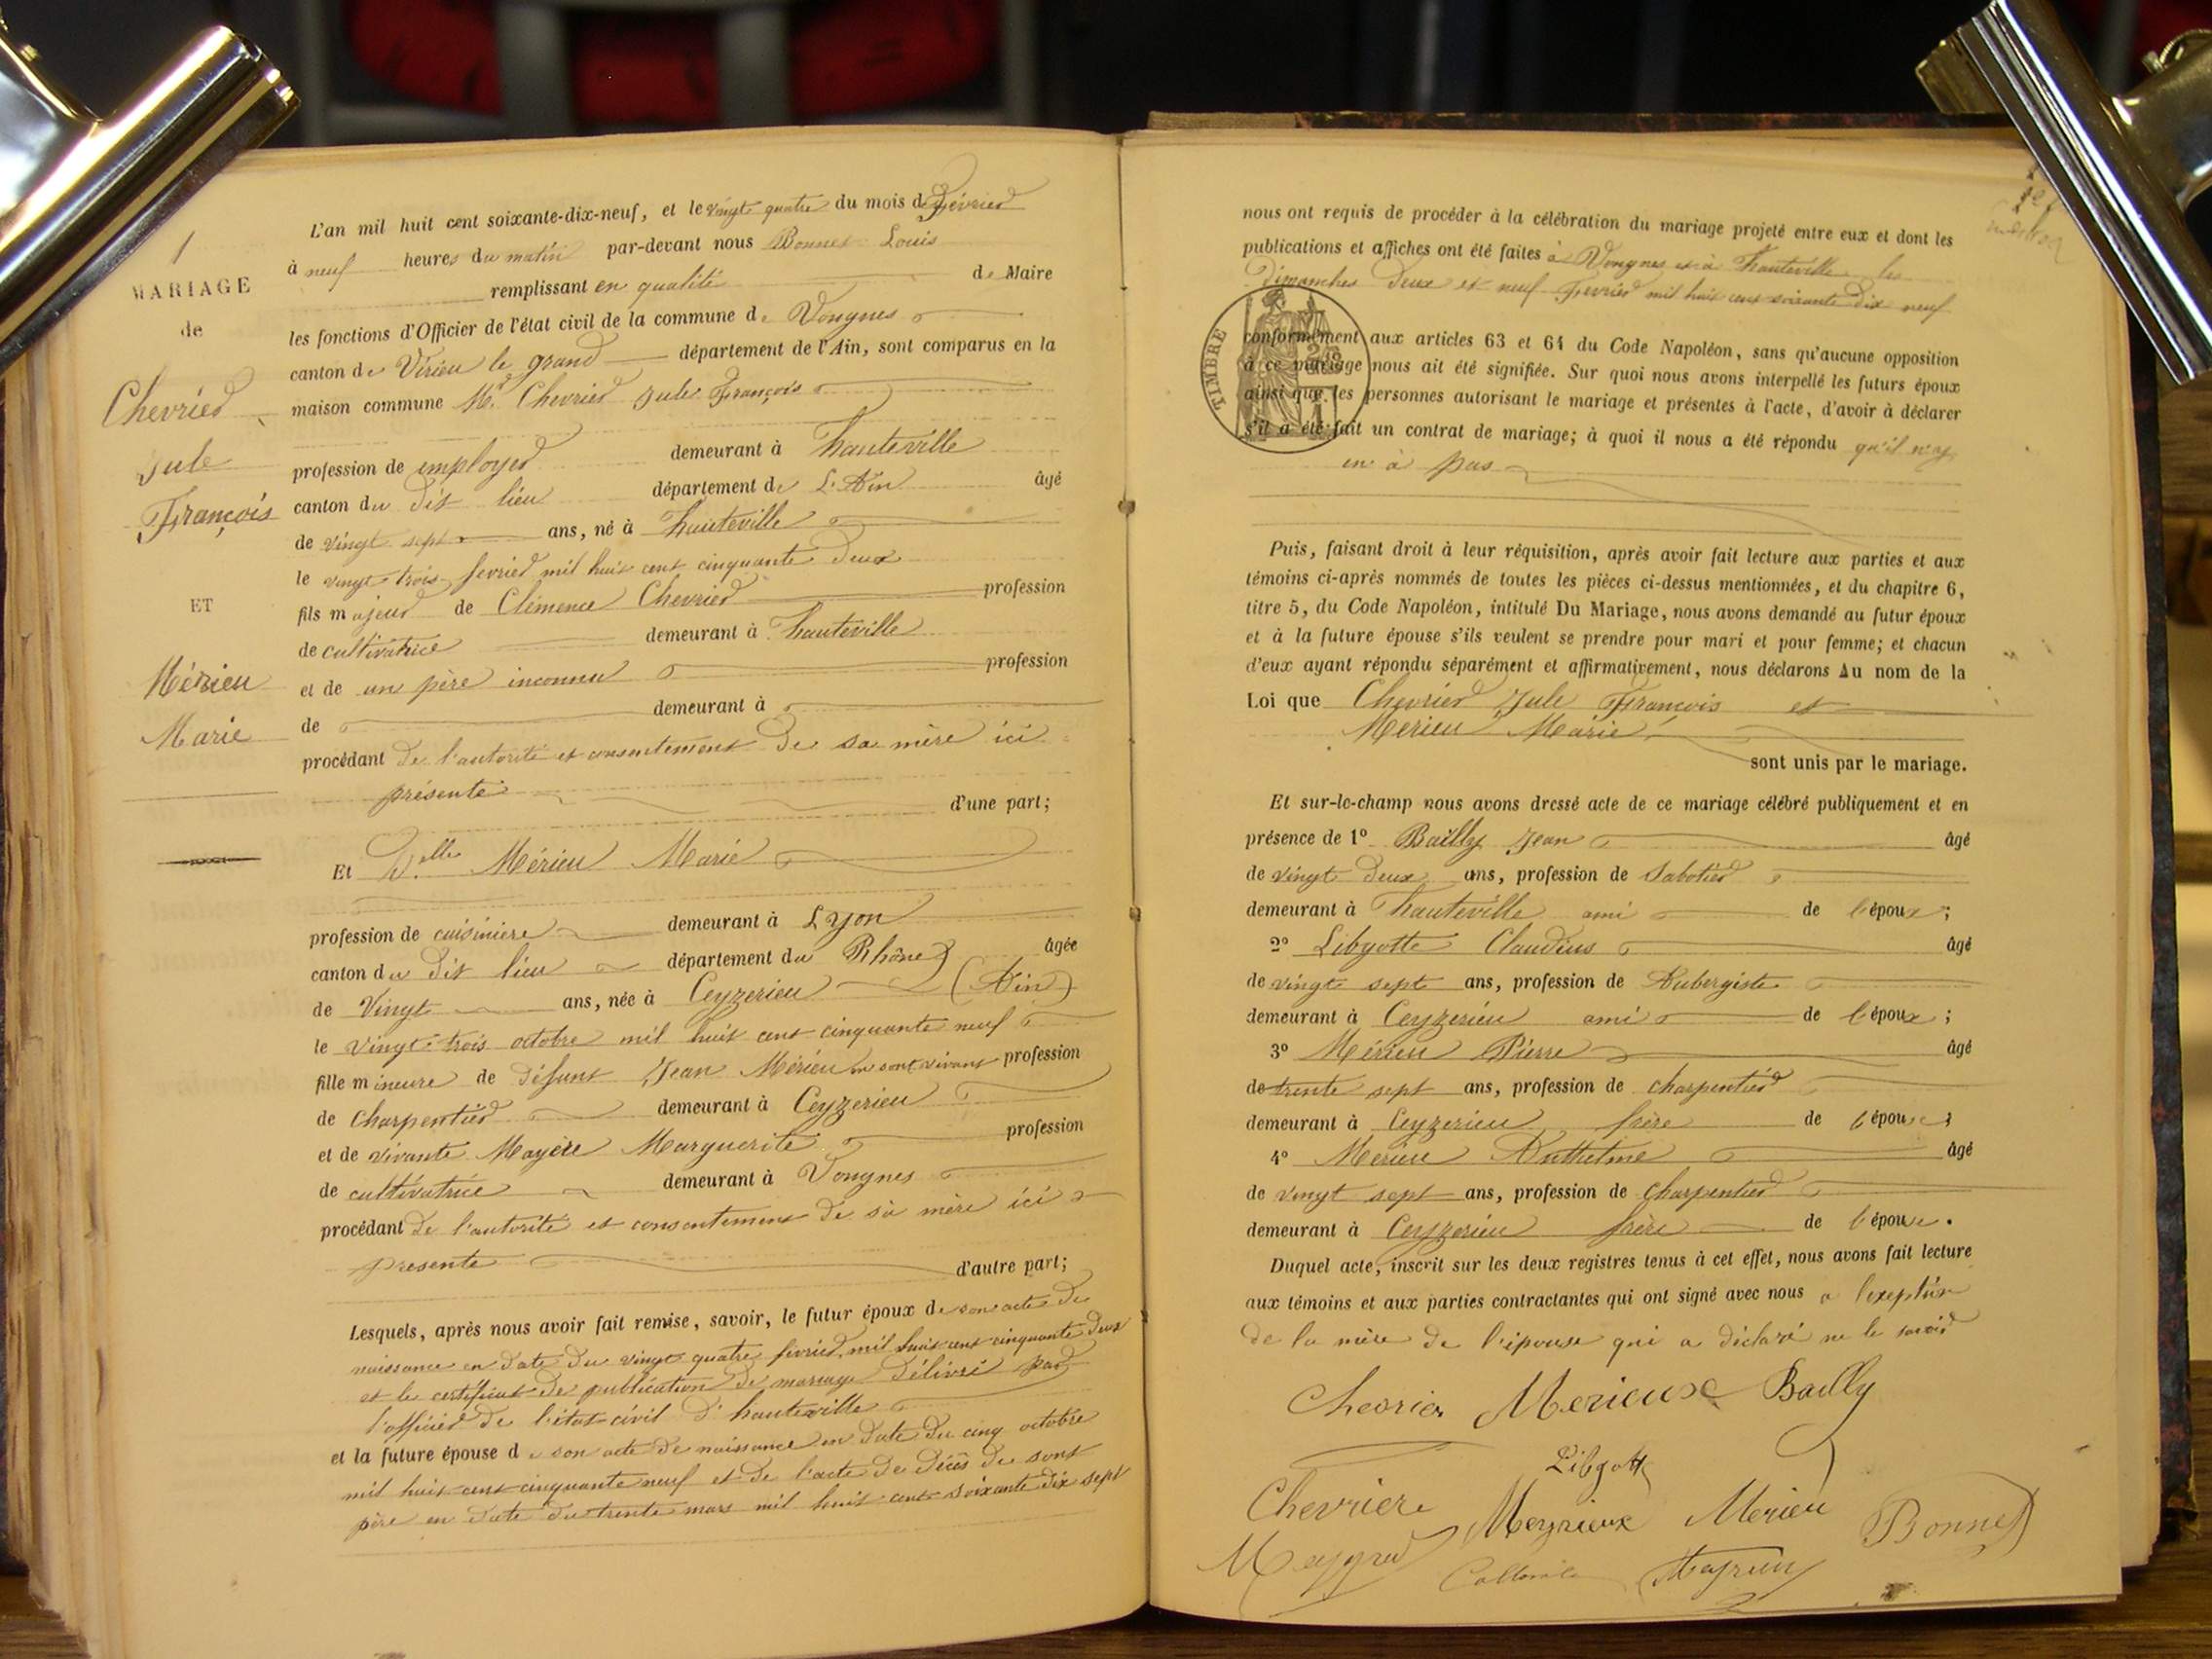 1
MARIAGE
de
Chevrier
Jule
François
ET
Mérieu
Marie
L'an mil huit cent soixante-dix-neuf, et le vingt quatre du mois de Février
à neuf heures du matin par-devant nous Bonnet Louis
remplissant en qualité de Maire
les fonctions d'Officier de l'état civil de la commune de Vongnes
canton de Virieu le grand département de l'Ain, sont comparus en la
maison commune Mr. Chevrier Jule François
profession de employer demeurant à hauteville
canton du dit lieu département de L'Ain âgé
de vingt sept ans, né à hauteville
le vingt trois fevrier mil huit cent cinquante deux
fils majeur de Clémence Chevrier profession
de cultivatrice demeurant à hauteville
et de un père inconnu profession
de demeurant à
procédant de l'autorité et consentement de sa mère ici
présente d'une part;
Et Delle Mérieu Marie
profession de cuisiniere demeurant à Lyon
canton du dit lieu département du Rhône âgée
de Vingt ans, née à Ceyzerieu (Ain)
le vingt-trois octobre mil huit cent cinquante neuf
fille mineure de défunt Jean Mérieu en sont vivant profession
de charpentier demeurant à Ceyzerieu
et de vivante Mayère Marguerite profession
de cultivatrice demeurant à Vongnes
procédant de l'autorité et consentement de sà mère ici
présente d'autre part;
Lesquels, après nous avoir fait remise, savoir, le futur époux de son acte de
naissance en date du vingt quatre fevrier mil huit cent cinquante deux
et le certificat de publication de mariage délivré par
l'officier de l'état-civil d'hauteville
et la future épouse de son acte de naissance en date du cinq octobre
mil huit cent cinquante neuf et de l'acte de décès de sont
père en date du trente mars mil huit cent soixante dix sept
nous ont requis de procéder à la célébration du mariage projeté entre eux et dont les
publications et affiches ont été faites à Vongnes et à hauteville les
Dimanches deux et neuf Fevrier mil huit cent soixante dix neuf
TIMBRE
conformément aux articles 63 et 64 du Code Napoléon, sans qu'aucune opposition
à ce mariage nous ait été signifiée. Sur quoi nous avons interpellé les futurs époux
ainsi que les personnes autorisant le mariage et présentes à l'acte, d'avoir à déclarer
s'il a été fait un contrat de mariage; à quoi il nous a été répondu qu'il n'y
en à pas
Puis, faisant droit à leur réquisition, après avoir fait lecture aux parties et aux
témoins ci-après nommés de toutes les pièces ci-dessus mentionnées, et du chapitre 6,
titre 5, du Code Napoléon, intitulé Du Mariage, nous avons demandé au futur époux
et à la future épouse s'ils veulent se prendre pour mari et pour femme; et chacun
d'eux ayant répondu séparément et affirmativement, nous déclarons Au nom de la
Loi que Chevrier Jule François et
Merieu Marie
sont unis par le mariage.
Et sur-le-champ nous avons dressé acte de ce mariage célébré publiquement et en
présence de 1º Bailly Jean âgé
de vingt deux ans, profession de Sabotier
demeurant à hauteville ami de l'époux;
2º Libgotte Claudius âgé
de vingt sept ans, profession de Aubergiste
demeurant à Ceyzerieu ami de l'époux;
3º Mérieu Pierre âgé
de trente sept ans, profession de charpentier
demeurant à Ceyzerieu frère de l'épouse;
4º Merieu Anthelme âgé
de vingt sept ans, profession de charpentier
demeurant à Ceyzerieu frère de l'épouse.
Duquel acte, inscrit sur les deux registres tenus à cet effet, nous avons fait lecture
aux témoins et aux parties contractantes qui ont signé avec nous a l'exeption
de la mère de l'épouse qui a déclaré ne le savoir
Chevrier Merieuse Bailly
Libgott
Chevriere Meyrieux Merieu Bonnet